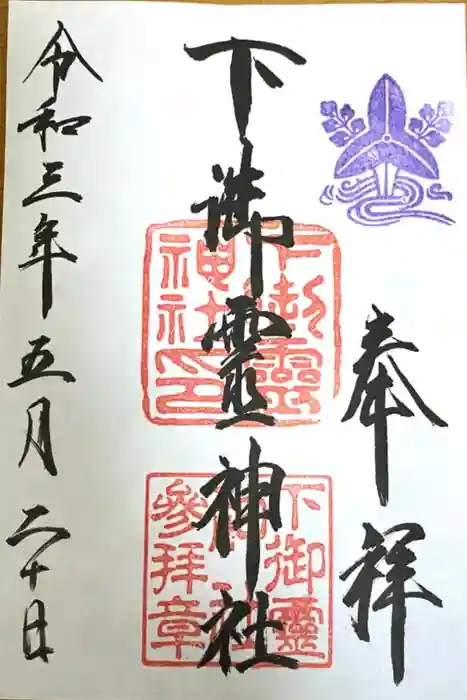 奉祥
下御霊神社
下御霊神社印
下御霊神社参拝章
令和三年五月二十日